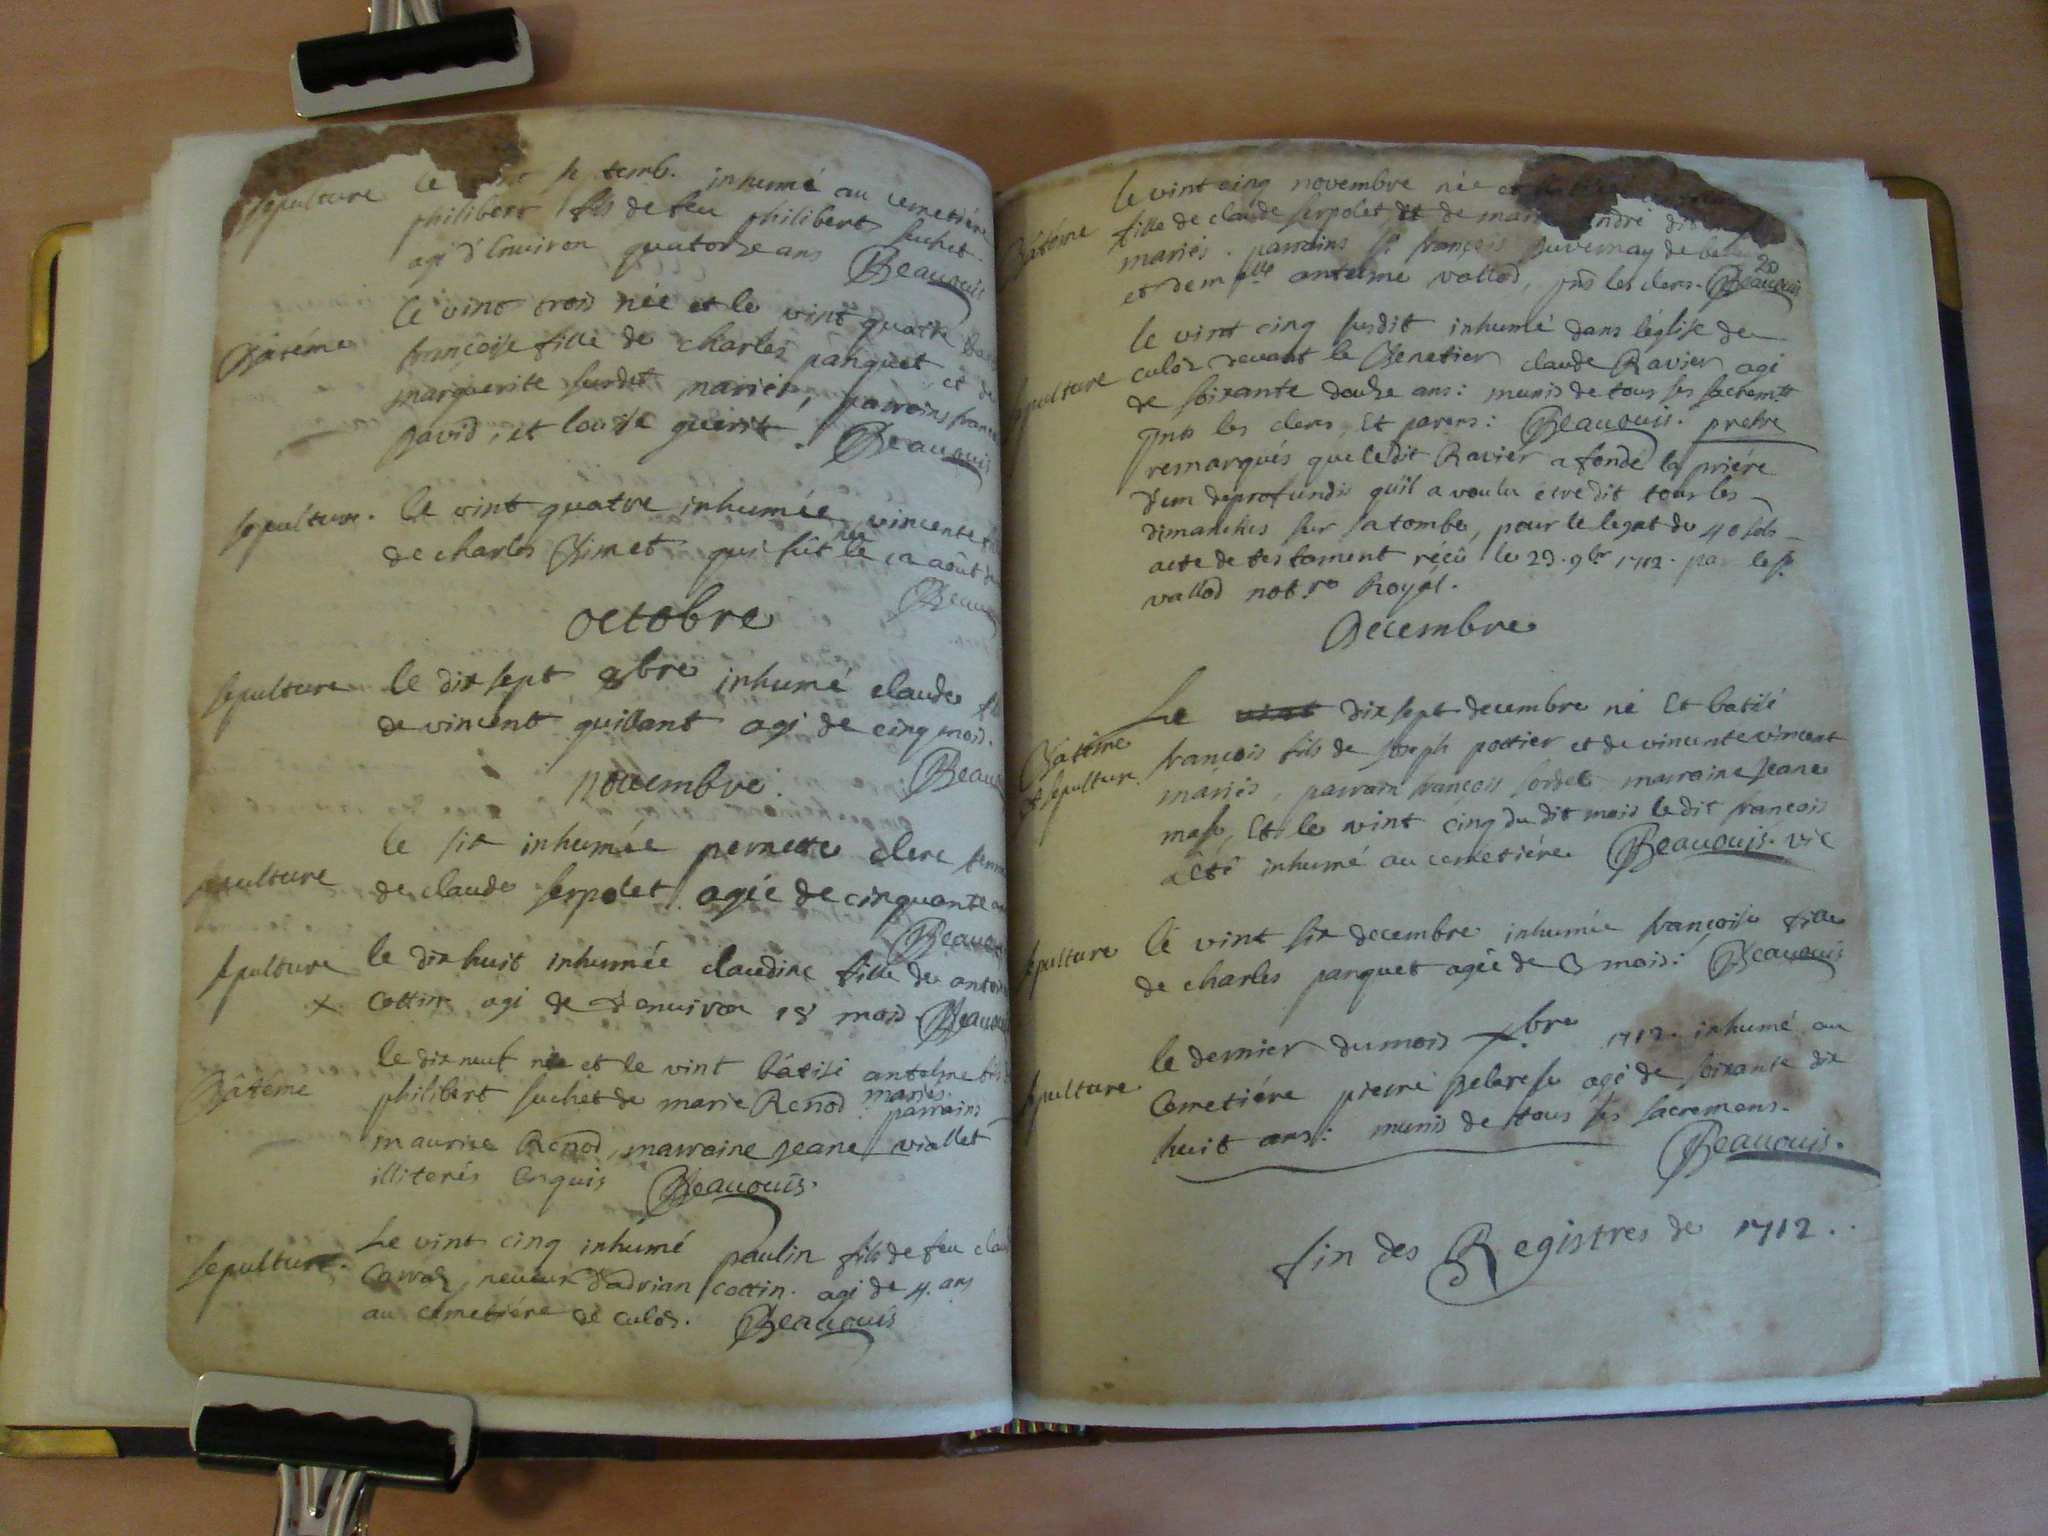 sepulture le septemb. inhumé au cemetiére
philibert fils de feu philibert suchet
agé d'Environ quatorze ans Beauouis
le vint trois née et le vint quatre
Bâtéme francoise fille de charles panquet et de
marguerite surdet mariés, parrains
David, et louise guerit. Beauouis
sepulture. le vint quatre inhumée vincente
de charles Bimet qui fût née le aoũt
Beauouis
octobre
sepulture le dix sept 8bre inhumé claude
de vincent guillant agé de cinq mois.
Beauouis
novembre.
le six inhumée pernette clerc femme
sepulture de claude serpolet agée de cinquante
Beauouis
sepulture le dix huit inhumée claudine fille de
x Cottin agé de d'environ 18 mois Beauouis
le dix neuf née et le vint bâtisé antelme
Bâtéme philibert suchet de marie Renod mariés. parrains
maurice Renod, marraine Jeane viallet
illiterés Enquis Beauouis.
sepulture. Le vint cinq inhumé paulin fils de feu
neveux d'adrian Cottin. agé de 4. ans
au cemetiére de culoz. Beauouis
20
le vint cinq novembre née et
Bâtéme fille de claude serpolet et de
mariés. parrains Sr françois Duvernay de
et demlle antelme vallod, pns les clers. Beauouis
le vint cinq susdit inhumé dans léglise de
culoz devant le Benetier claude Ravier agé
sepulture de soixante douze ans: munis de tous ses sacremts
pnts les clers, Et parens: Beauouis. prebre
remarqués que ledit Ravier a fondé la priére
d'un deprofundis quil a voulu etre dit tous les
dimanches sur sa tombe, pour le legat de 40 sols
acte de testament réçû le 23. 9br 1712. par le sr
vallod notre Royal.
Decembre
Le vint dix sept decembre né Et batisé
Batéme françois fils de Joseph pottier et de vincente vincent
et sepulture. mariés, parrain françois sordet marraine Jeane
masse, Et le vint cinq du dit mois le dit françois
a été inhumé au cemetiére. Beauouis. vic
sepulture le vint six decembre inhumée françoise fille
de charles panquet agée de 3 mois: Beauouis
le dernier du mois xbre 1712. inhumé au
sepulture. Cemetiére pierre agé de soixante dix
huit ans: munis de tous ses sacremens.
Beauouis.
fin des Registres de 1712.